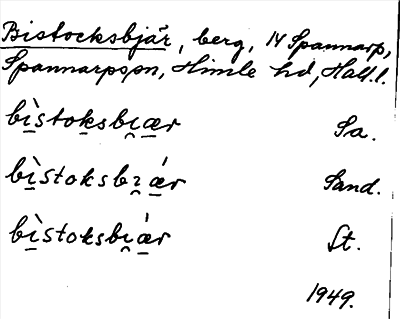 Bistocksbjär, berg, 14 Spannarp,
Spannarps sn, Himle hd, Hall. l.
bì̲stok̲sbi̯æ̲r Sa.
bì̲stoksbɪ̯ǽ̲r Sand.
bì̲stoksbi̯ǽ̲r St.
1949.